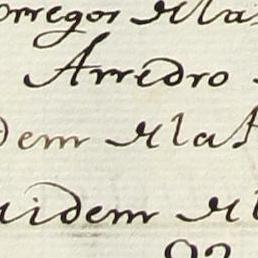 orregor de la
Arredro
dem de la
uidem de
92